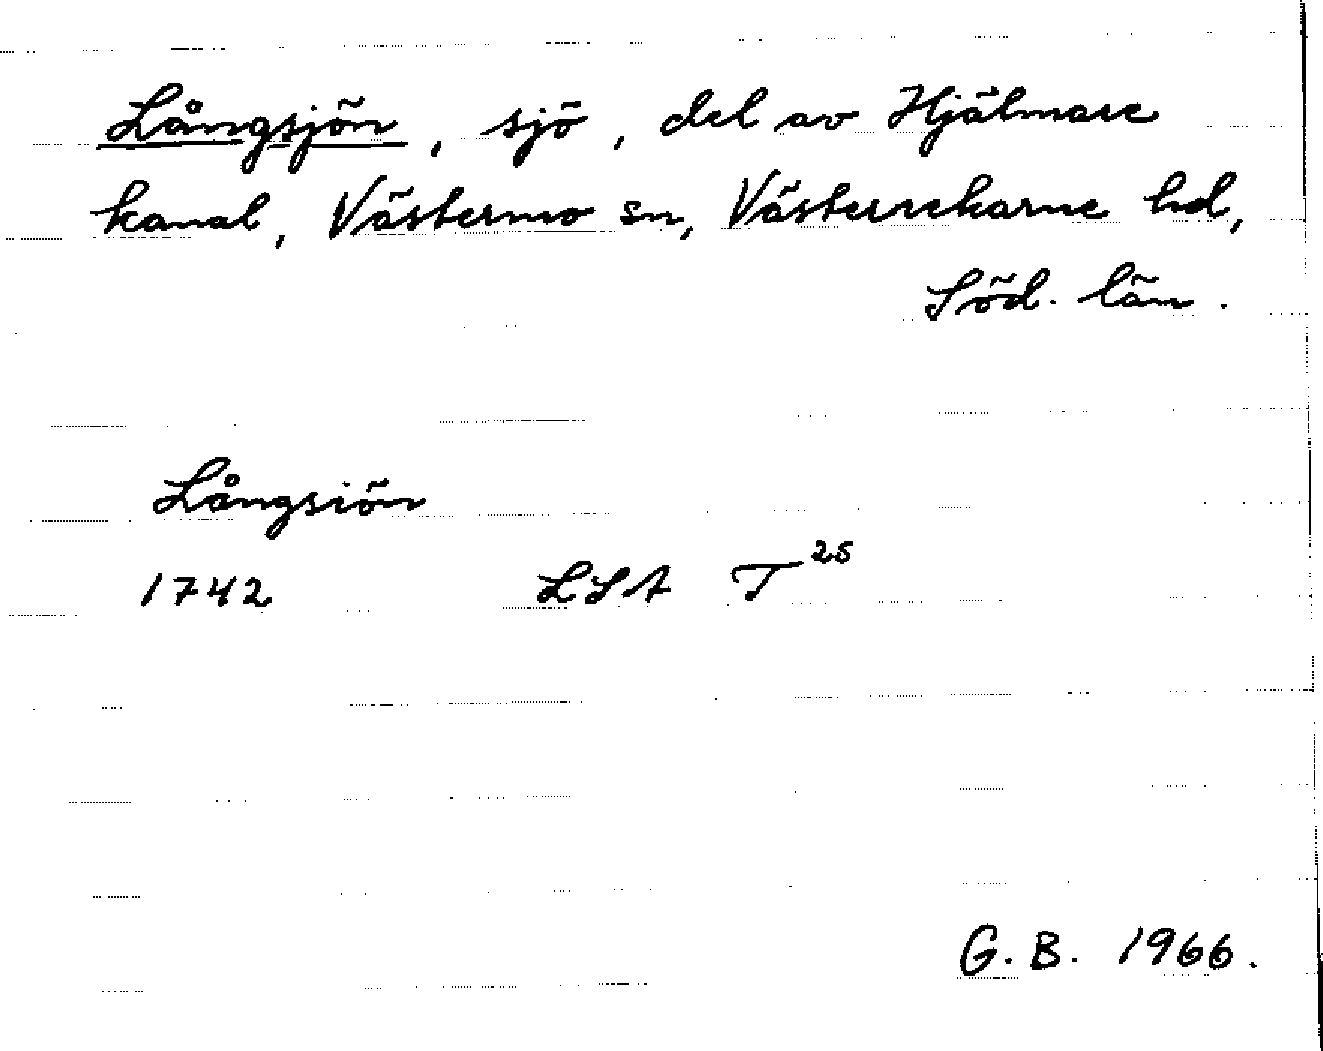 Långsjön, sjö, del av Hjälmare
kanal, Västermo sn, Västerrekarne hd,
Söd. län.
Långsiön
1742 LSA T²⁵
G. B. 1966.